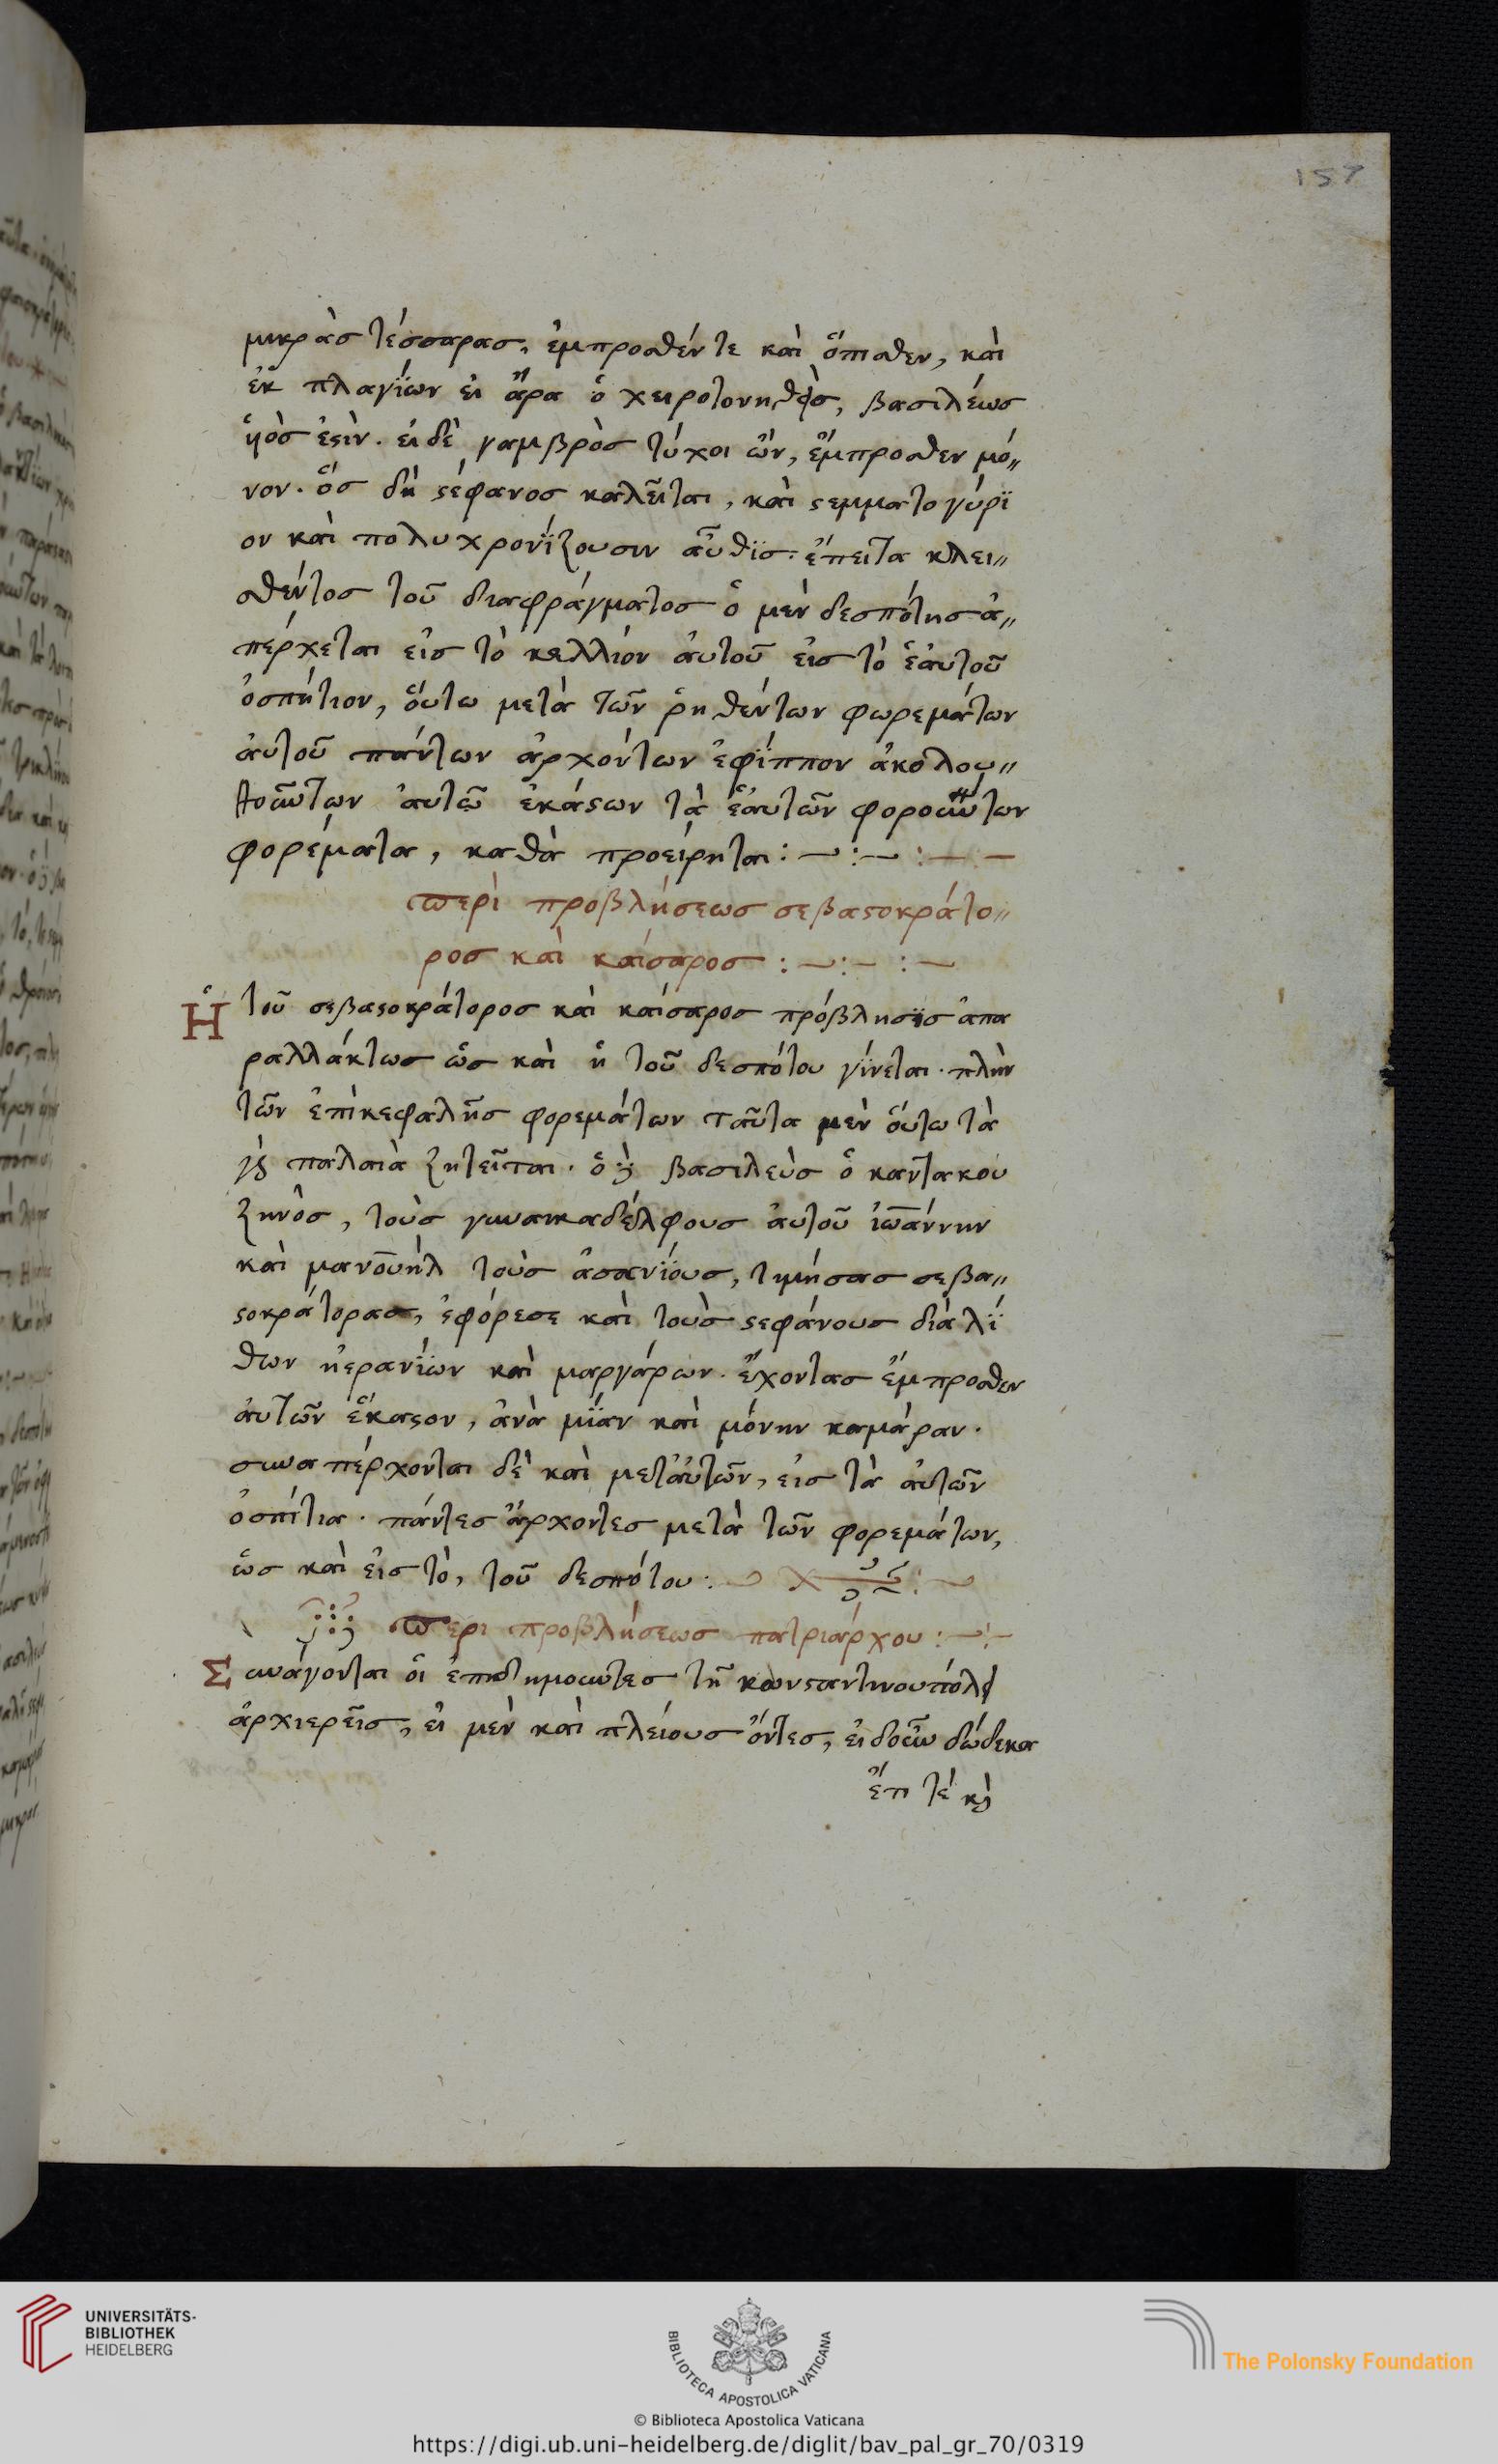 157
μικρὰσ τέσσαρασ, ἐμπροσθέν τε καὶ ὄπισθεν, καὶ
ἐκ πλαγΐων εἰ ἄρα ὁ χειροτονηθεὶσ, βασιλέωσ
ὑὸσ ἐϛὶν. εἰ δὲ γαμβρὸσ τύχοι ὢν, ἔμπροσθεν μό〃
νον. ὃσ δὴ ϛέφανοσ καλεῖται, καὶ ϛεμματογύρϊ
ον καὶ πολυχρονΐζουσιν αὖθϊσ· ἔπειτα κλει〃
σθέντοσ τοῦ διαφράγματοσ ὁ μὲν δεσπότησ ἀ〃
πέρχεται εἰσ τὸ κελλίον ἀυτοῦ εἰσ τὸ ἑαυτοῦ
ὀσπήτιον, ὅυτω μετὰ τῶν ῥηθέντων φωρεμάτων
ἀυτοῦ πάντων ἀρχόντων ἐφΐππον ἀκολου〃
θούντων ἀυτῶ ἑκάϛων τὰ ἑαυτῶν φορούντων
φορέματα, καθὰ προείρηται : — : — : — —
περὶ προβλήσεωσ σεβαϛοκράτο〃
ροσ καὶ καίσαροσ : — : — : —
Ἡ τοῦ σεβαϛοκράτοροσ καὶ καίσαροσ πρόβλησϊσ ἀπα
ραλλάκτωσ ὡσ καὶ ἡ τοῦ δεσπότου γΐνεται. πλὴν
τῶν ἐπὶκεφαλῆσ φορεμάτων ταῦτα μὲν ὅυτω τὰ
γὰρ παλαιὰ ζητεῖται. ὁ δὲ βασιλεὺσ ὁ καντακου
ζηνὸσ, τοὺσ γυναικαδέλφουσ ἀυτοῦ ἰωάννην
καὶ μανουὴλ τοὺσ ἀσανΐουσ, τιμήσασ σεβα〃
ϛοκράτορασ, ἐφόρεσε καὶ τοὺσ ϛεφάνουσ διὰ λΐ
θων ἠερανΐων καὶ μαργάρων. ἔχοντασ ἔμπροσθεν
ἀυτῶν ἕκαϛον, ἀνὰ μΐαν καὶ μόνην καμάραν.
συναπέρχονται δὲ καὶ μετἀυτῶν, εἰσ τὰ ἀυτῶν
ὀσπίτια. πάντεσ ἄρχοντεσ μετὰ τῶν φορεμάτων,
ὡσ καὶ εἰσ τὸ, τοῦ δεσπότου :
περι προβλήσεωσ πατριάρχου : — : —
Συνάγονται ὁι ἐπιδημουντεσ τῆ κωνσταντινουπόλει
ἀρχιερεῖσ, εἰ μὲν καὶ πλείουσ ὄντεσ, εἰ δοῦν δώδεκα
ἔπι τέ καὶ
UNIVERSITÄTS-
BIBLIOTHEK
HEIDELBERG
BIBLIOTECA APOSTOLICA VATICANA
The Polonsky Foundation
© Biblioteca Apostolica Vaticana
https://digi.ub.uni-heidelberg.de/diglit/bav_pal_gr_70/0319